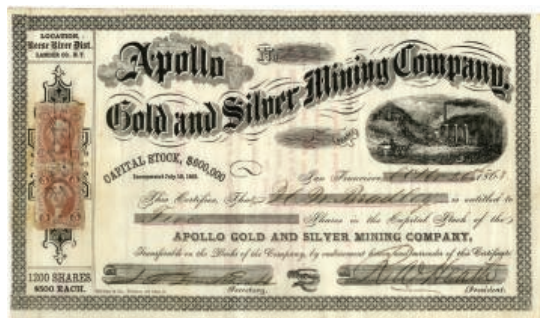 LOCATION,
Reese River Dist.
LANDER CO. N.T.
Apollo
No
Gold and Silver Mining Company.
CAPITAL STOCK, $600,000
Incorporated July 18, 1863.
San Francisco, 1863
This Certifies, That H. N. Bradley is entitled to
Five Shares in the Capital Stock of the
APOLLO GOLD AND SILVER MINING COMPANY,
Transferable on the Books of the Company, by endorsement hereon and surrender of this Certificate
1200 SHARES
$500 EACH.
Secretary.
President.